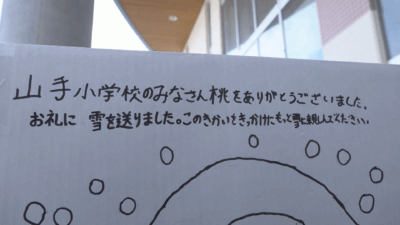 山手小学校のみなさん桃をありがとうございました。
お礼に 雪を送りました。このきかいをきっかけにもっと雪と親しんでください。